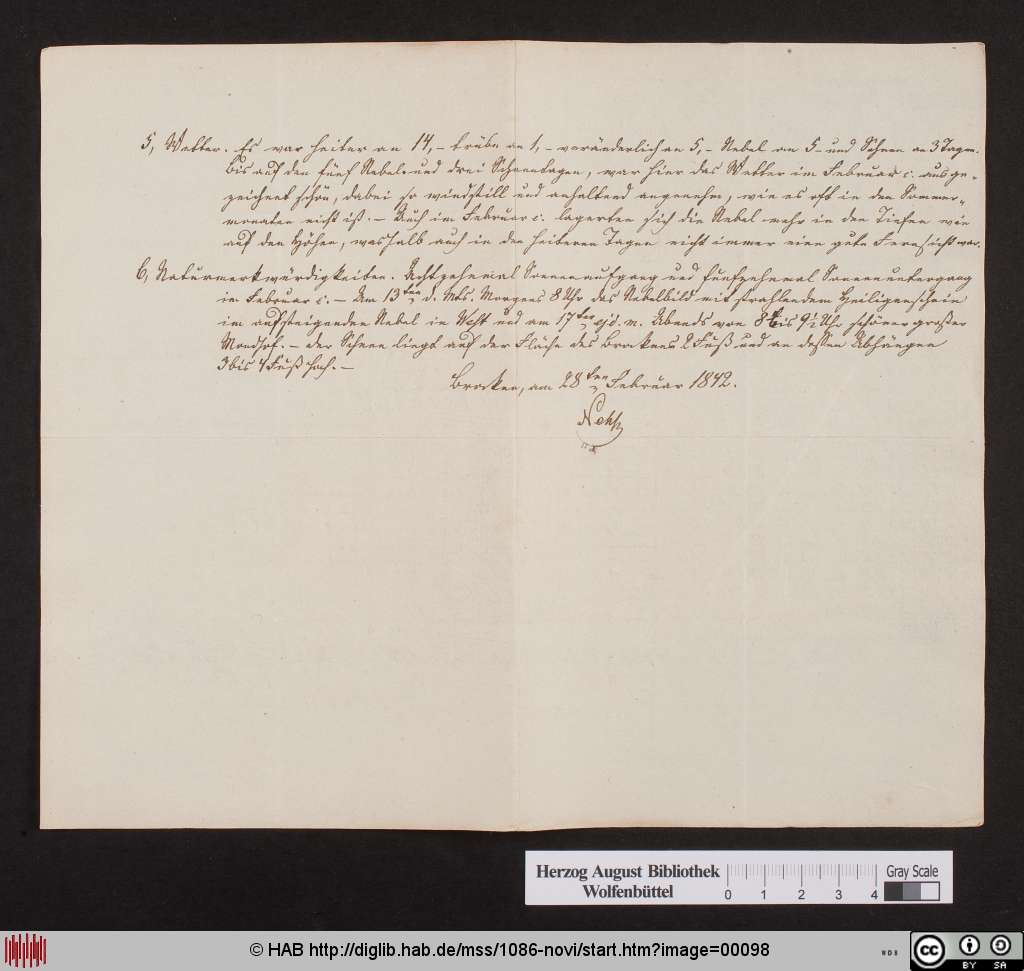 5, Wetter. Es war heiter an 14, – trübe an 1, – veränderlich an 5, – Nebel an 5 – und Schnee an 3 Tagen.
Bis auf den fünf Nebel- und drei Schneetagen, war hier das Wetter im Februar c. ausge-
zeichnet schön, dabei so windstill und anhaltend angenehm, wie es oft in den Sommer-
monaten nicht ist. – Auch im Februar c. lagerten sich die Nebel mehr in den Tiefen wie
auf den Höhen, weshalb auch in den heiteren Tagen nicht immer eine gute Fernsicht war.
6, Naturmerkwürdigkeiten. Achtzehnmal Sonnenaufgang und fünfzehnmal Sonnenuntergang
im Februar c. – Am 13ten d. Mts. Morgens 8 Uhr das Nebelbild mit strahlendem Heiligenschein
im aufsteigenden Nebel in West und am 17ten ejd. m. Abends von 8 bis 9½ Uhr schöner großer
Mondhof. – Der Schnee liegt auf der Fläche des Brockens 2 Fuß und an dessen Abhängen
3 bis 4 Fuß hoch. –
Brocken, am 28ten Februar 1842.
Nehse
Herzog August Bibliothek
Wolfenbüttel
0 1 2 3 4
Gray Scale
© HAB http://diglib.hab.de/mss/1086-novi/start.htm?image=00098
WDB
cc BY SA